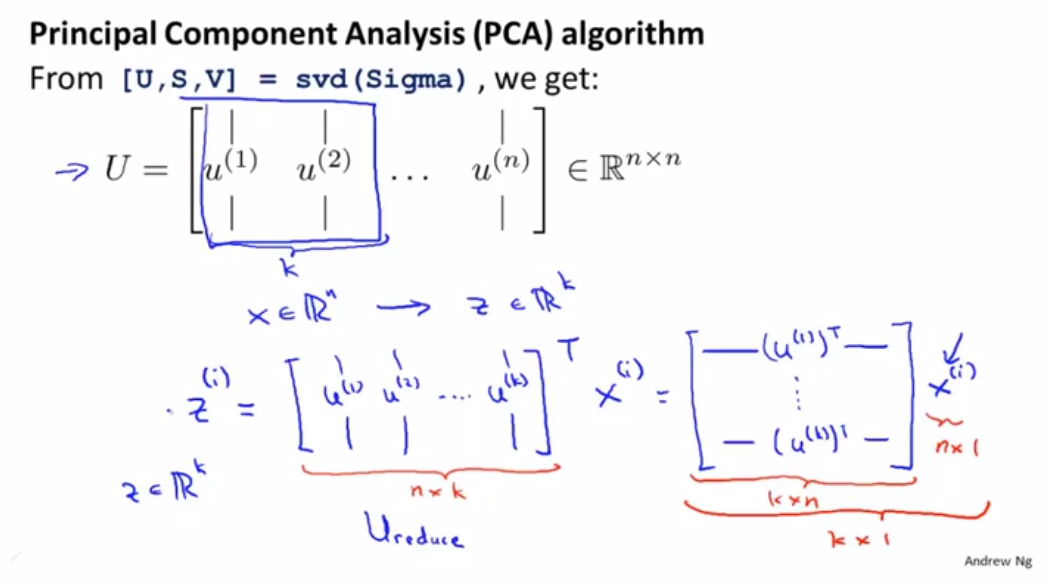 Principal Component Analysis (PCA) algorithm
From [U,S,V] = svd(Sigma) , we get:
→ U = [ u^(1) u^(2) … u^(n) ] ∈ ℝ^{n×n}
k
x ∈ ℝ^n → z ∈ ℝ^k
z^(i) = [ u^(1) u^(2) .... u^(k) ]^T x^(i) = [ —(u^(1))^T— ⋮ —(u^(k))^T— ] x^(i)
z ∈ ℝ^k
n×k
k×n
n×1
U_reduce
k×1
Andrew Ng